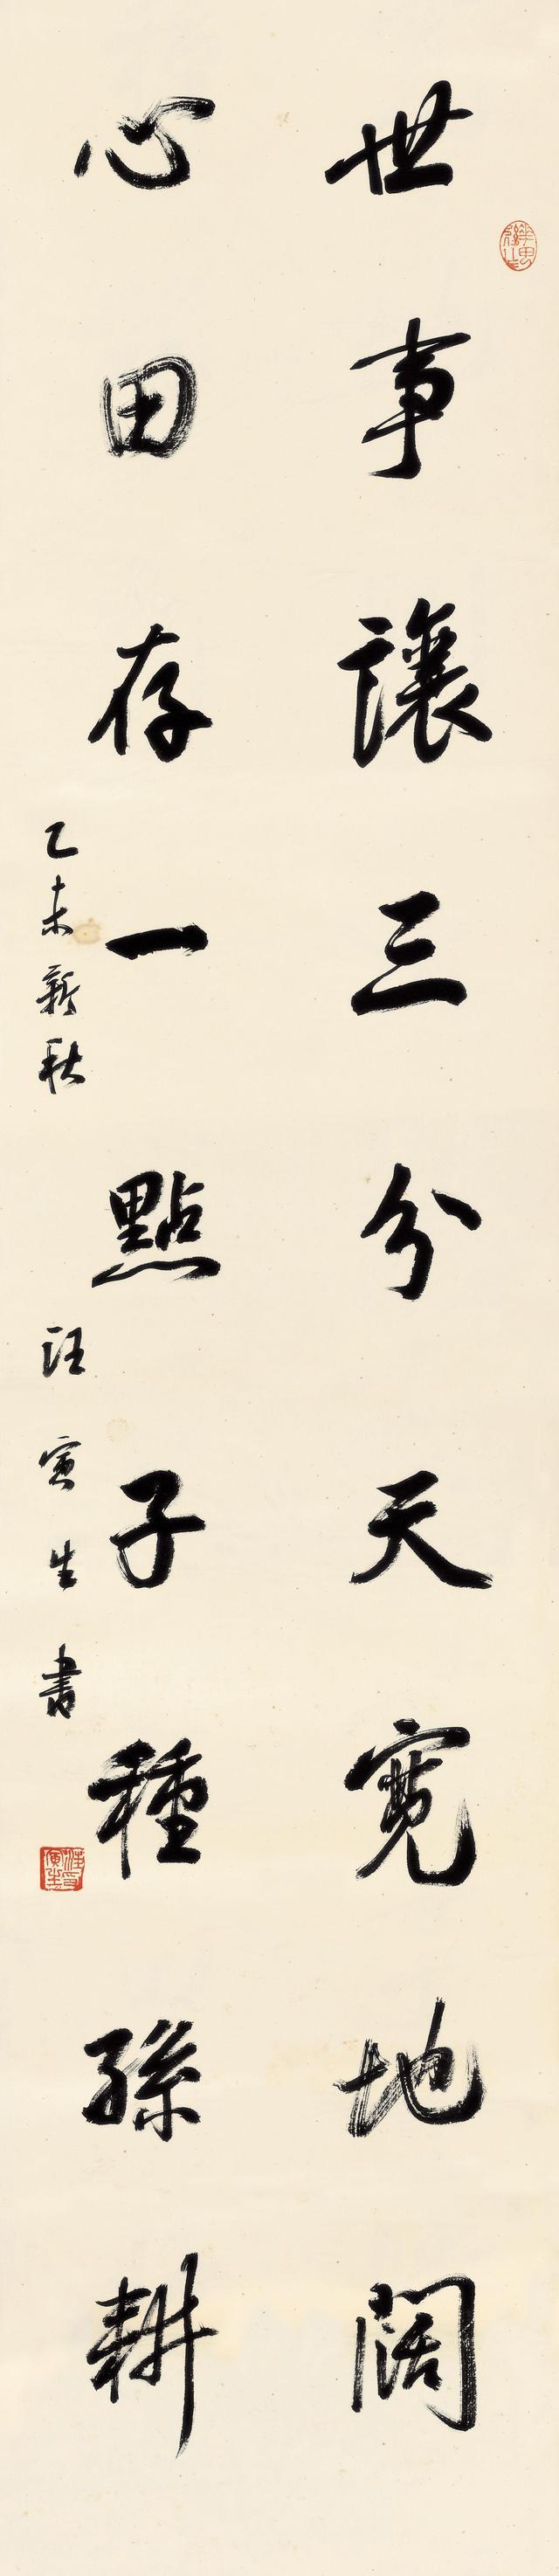 世事讓三分天寬地闊
心田存一點子種孫耕
乙未新秋 汪寅生書
汪寅生印